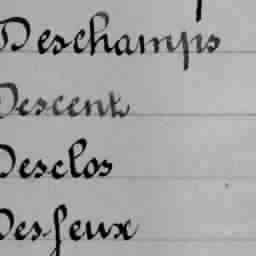 Deschamps
Descent
Desclos
Desjeux